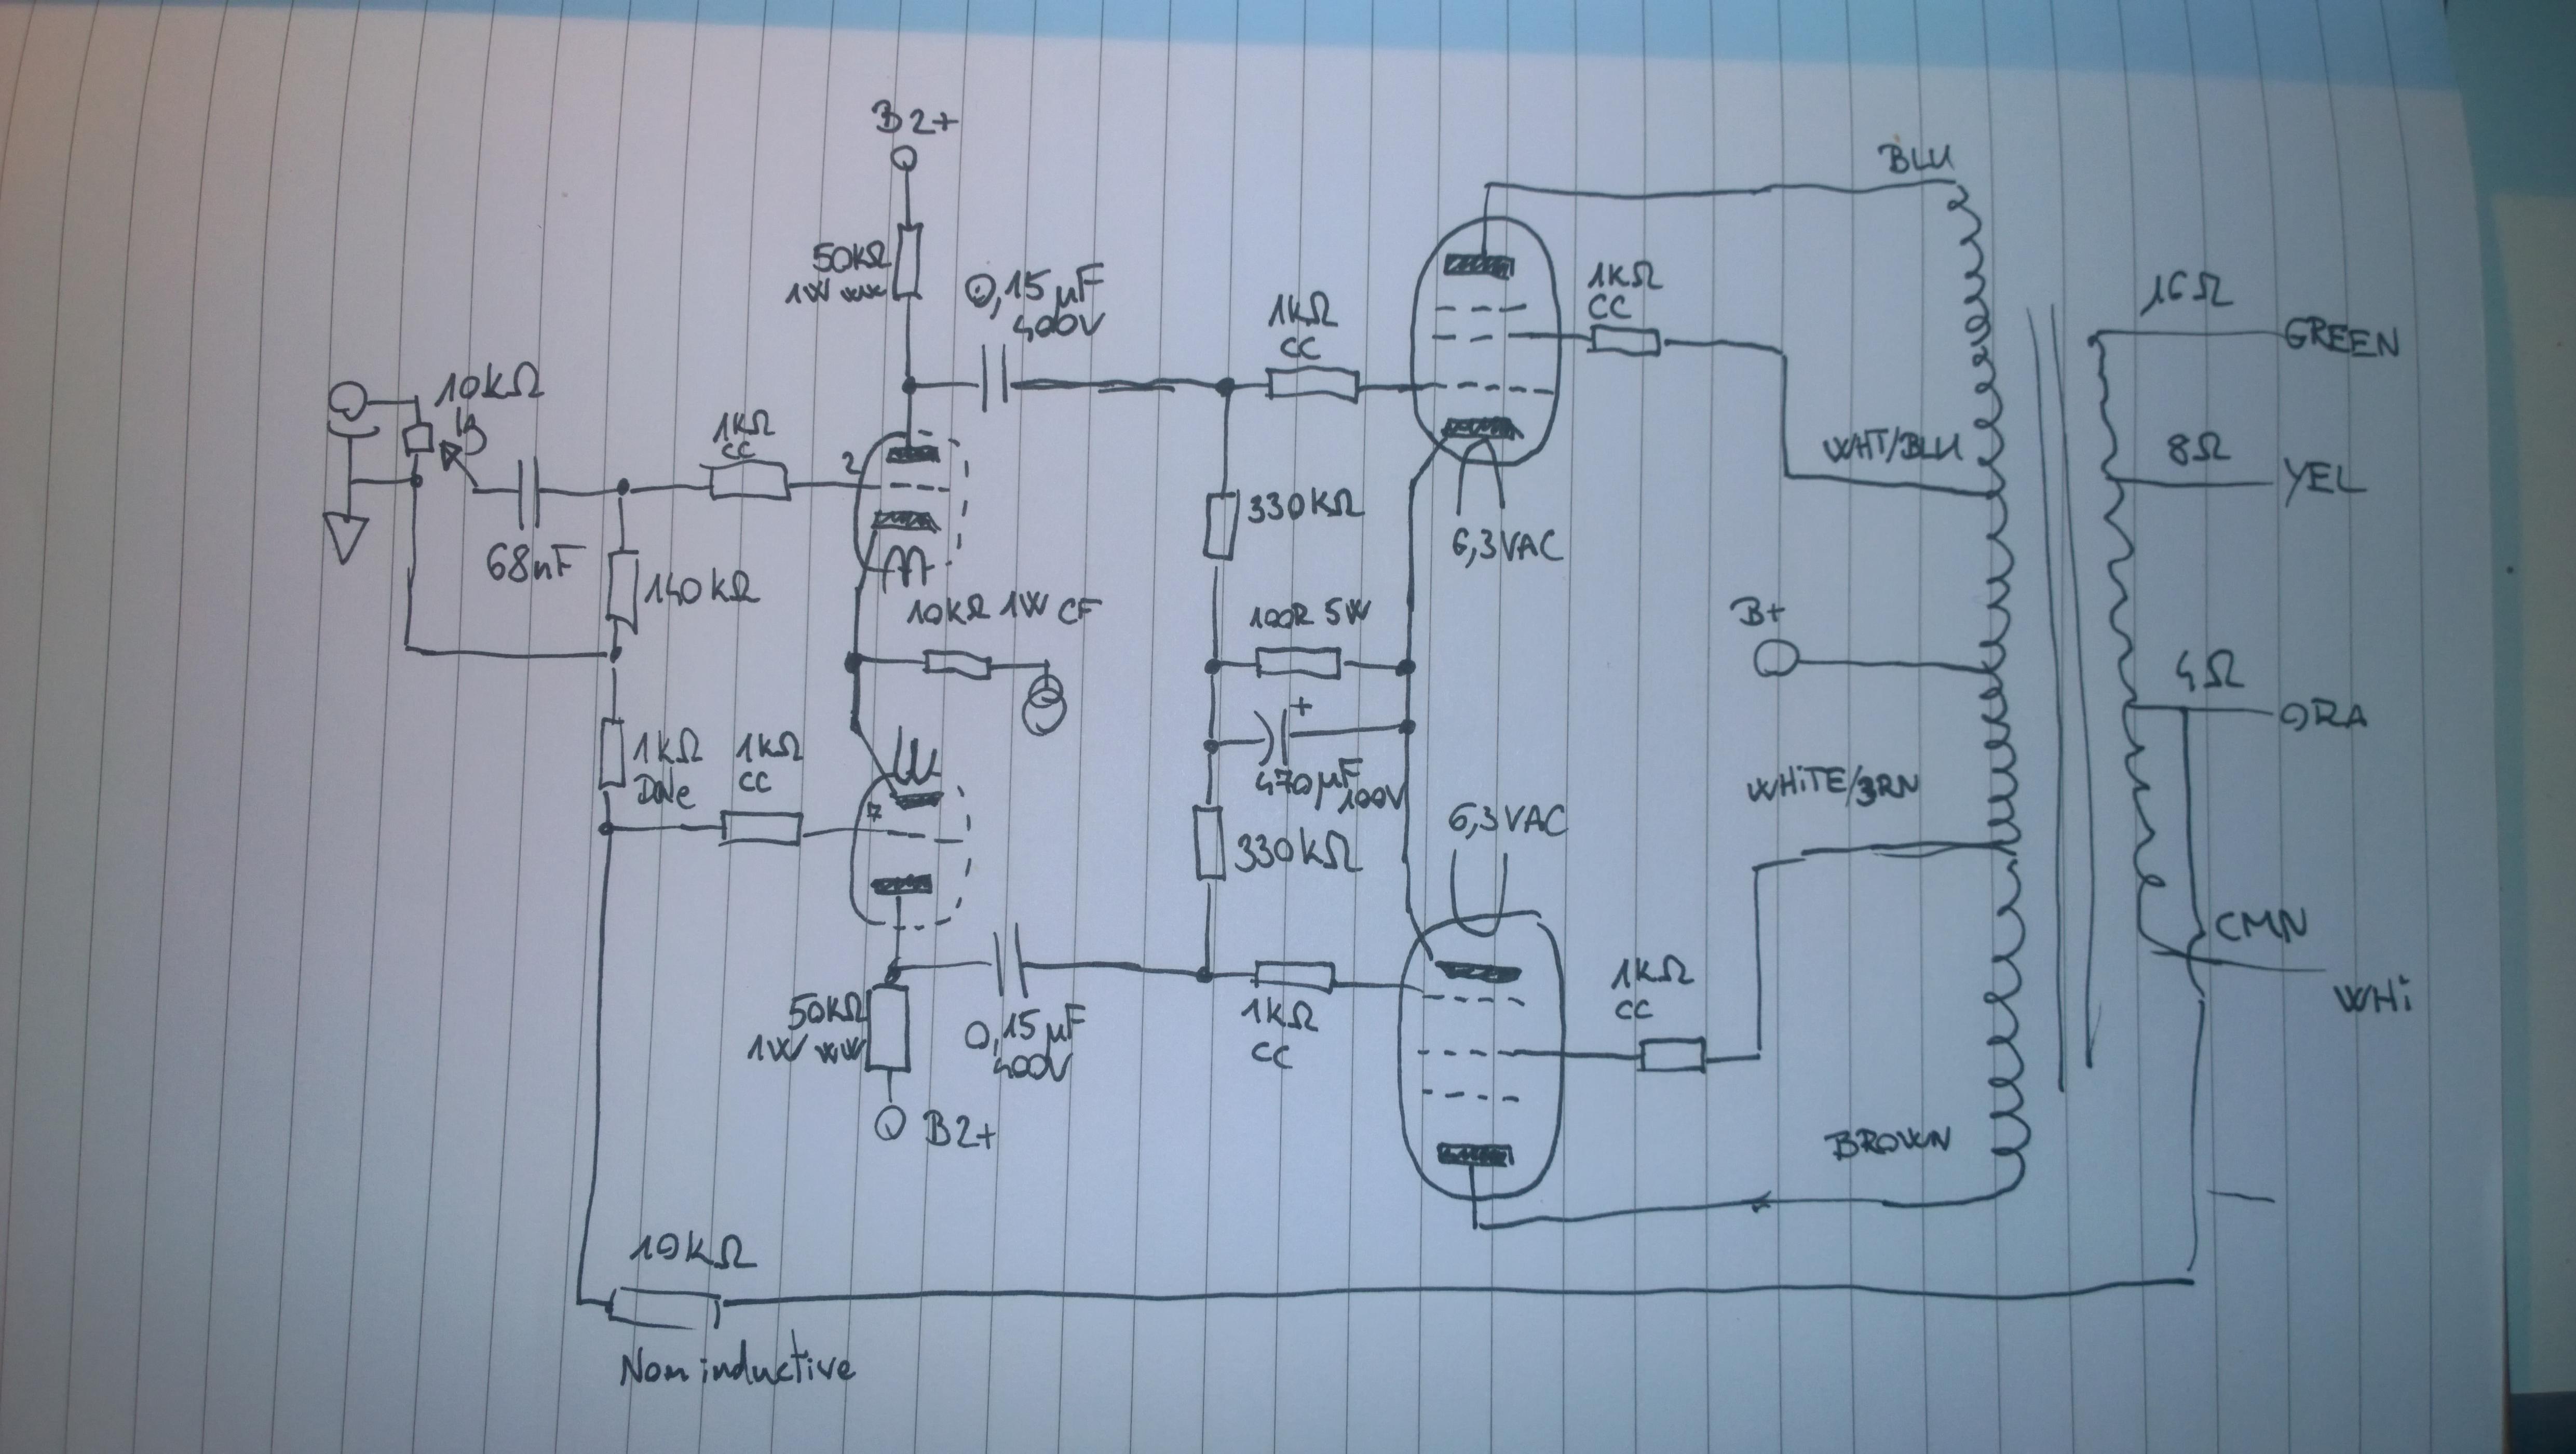 B2+
BLU
50kΩ
1W ww
0,15µF
400V
1kΩ
CC
1KΩ
CC
16Ω
GREEN
10kΩ
1kΩ
CC
2
WHT/BLU
8Ω
YEL
68nF
140kΩ
330kΩ
6,3VAC
10kΩ 1W CF
100R 5W
B+
4Ω
ORA
1kΩ
Dale
1kΩ
CC
+
470µF
100V
7
6,3VAC
WHiTE/BRN
330kΩ
CMN
WHi
50kΩ
1W ww
0,15µF
400V
1kΩ
CC
1KΩ
CC
B2+
BROWN
10kΩ
Non inductive